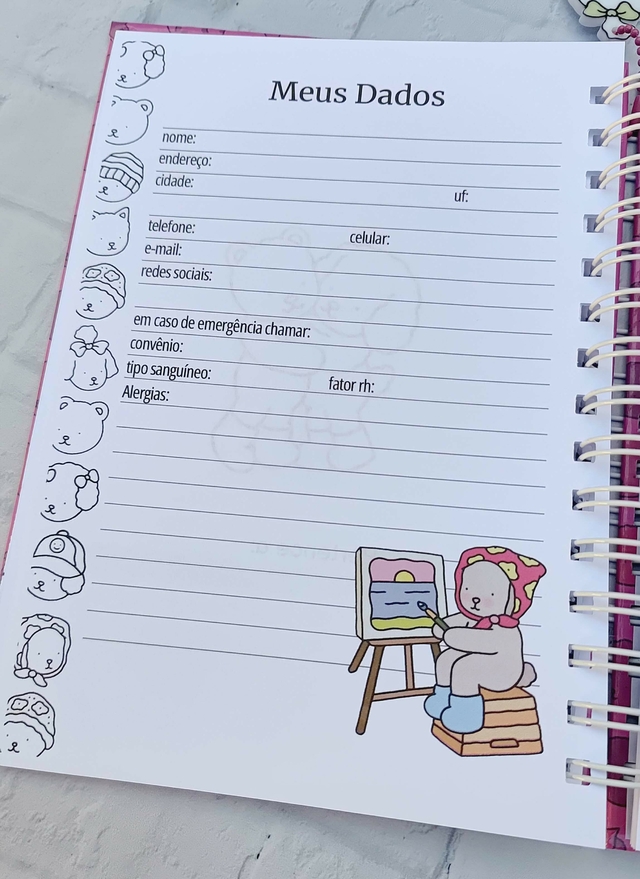 Meus Dados
nome:
endereço:
cidade: uf:
telefone: celular:
e-mail:
redes sociais:
em caso de emergência chamar:
convênio:
tipo sanguíneo: fator rh:
Alergias: